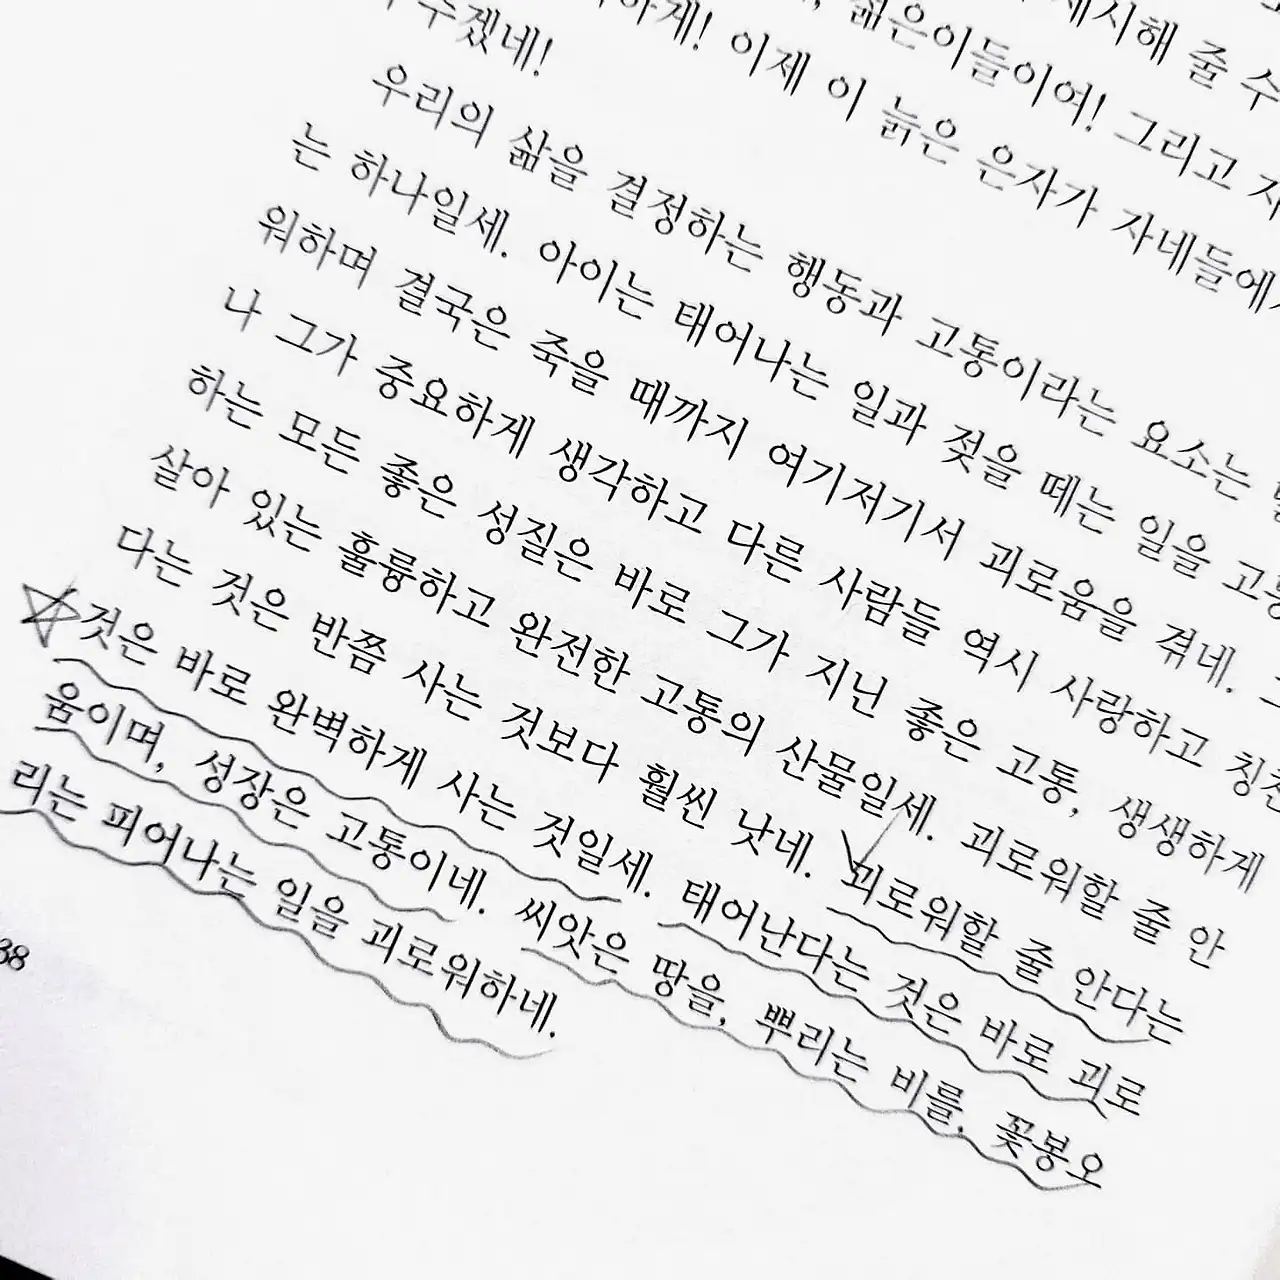 제시해 줄 수
젊은이들이여! 그리고
이제 이 늙은 은자가 자네들에게
우리의 삶을 결정하는 행동과 고통이라는 요소는
는 하나일세. 아이는 태어나는 일과 젖을 떼는 일을
워하며 결국은 죽을 때까지 여기저기서 괴로움을 겪네.
나 그가 중요하게 생각하고 다른 사람들 역시 사랑하고 칭찬
하는 모든 좋은 성질은 바로 그가 지닌 좋은 고통, 생생하게
살아 있는 훌륭하고 완전한 고통의 산물일세. 괴로워할 줄 안
다는 것은 반쯤 사는 것보다 훨씬 낫네. 괴로워할 줄 안다는
것은 바로 완벽하게 사는 것일세. 태어난다는 것은 바로 괴로
움이며, 성장은 고통이네. 씨앗은 땅을, 뿌리는 비를, 꽃봉오
리는 피어나는 일을 괴로워하네.